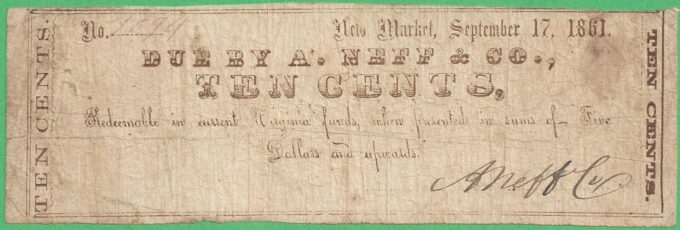 TEN CENTS.
No. 1594
New Market, September 17, 1861.
DUE BY A. NEFF & CO.,
TEN CENTS,
Redeemable in current Virginia funds, when presented in sums of Five
Dollars and upwards.
A Neff & Co,
TEN CENTS.